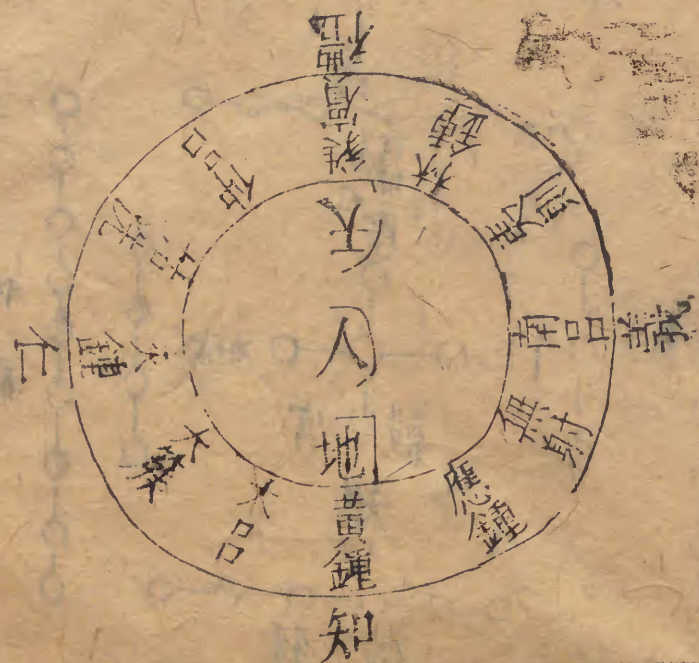 禮
蕤賓
林鍾
夷則
南呂
義
無射
應鍾
黃鍾
知
大呂
大簇
夾鍾
仁
姑洗
仲呂
天
人
地